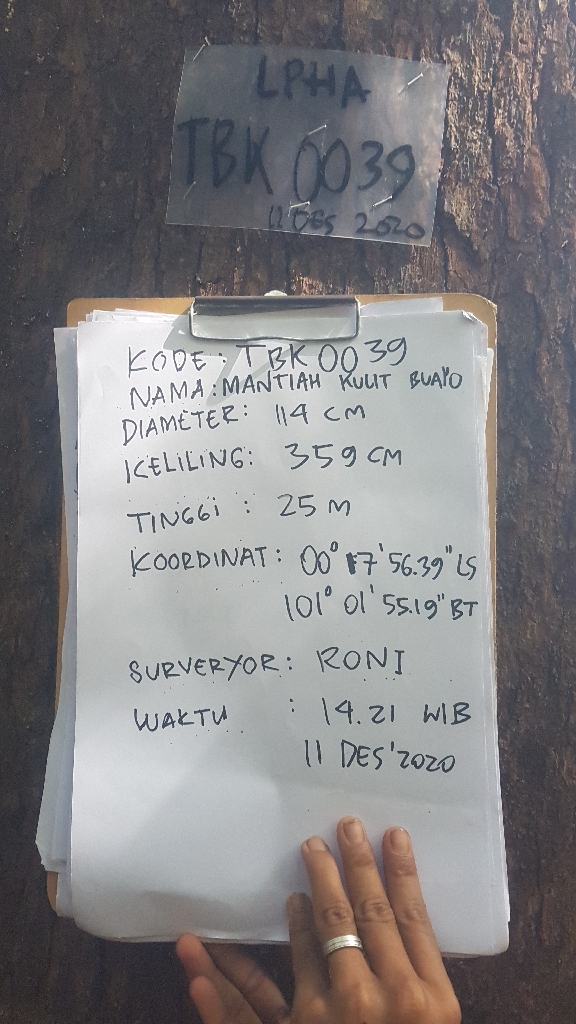 LPHA
TBK 0039
11 DES 2020
KODE: TBK 0039
NAMA: MANTIAH KULIT BUAYO
DIAMETER: 114 CM
KELILING: 359 CM
TINGGI : 25 M
KOORDINAT: 00° 17' 56.39" LS
101° 01' 55.19" BT
SURVERYOR: RONI
WAKTU : 14.21 WIB
11 DES'2020